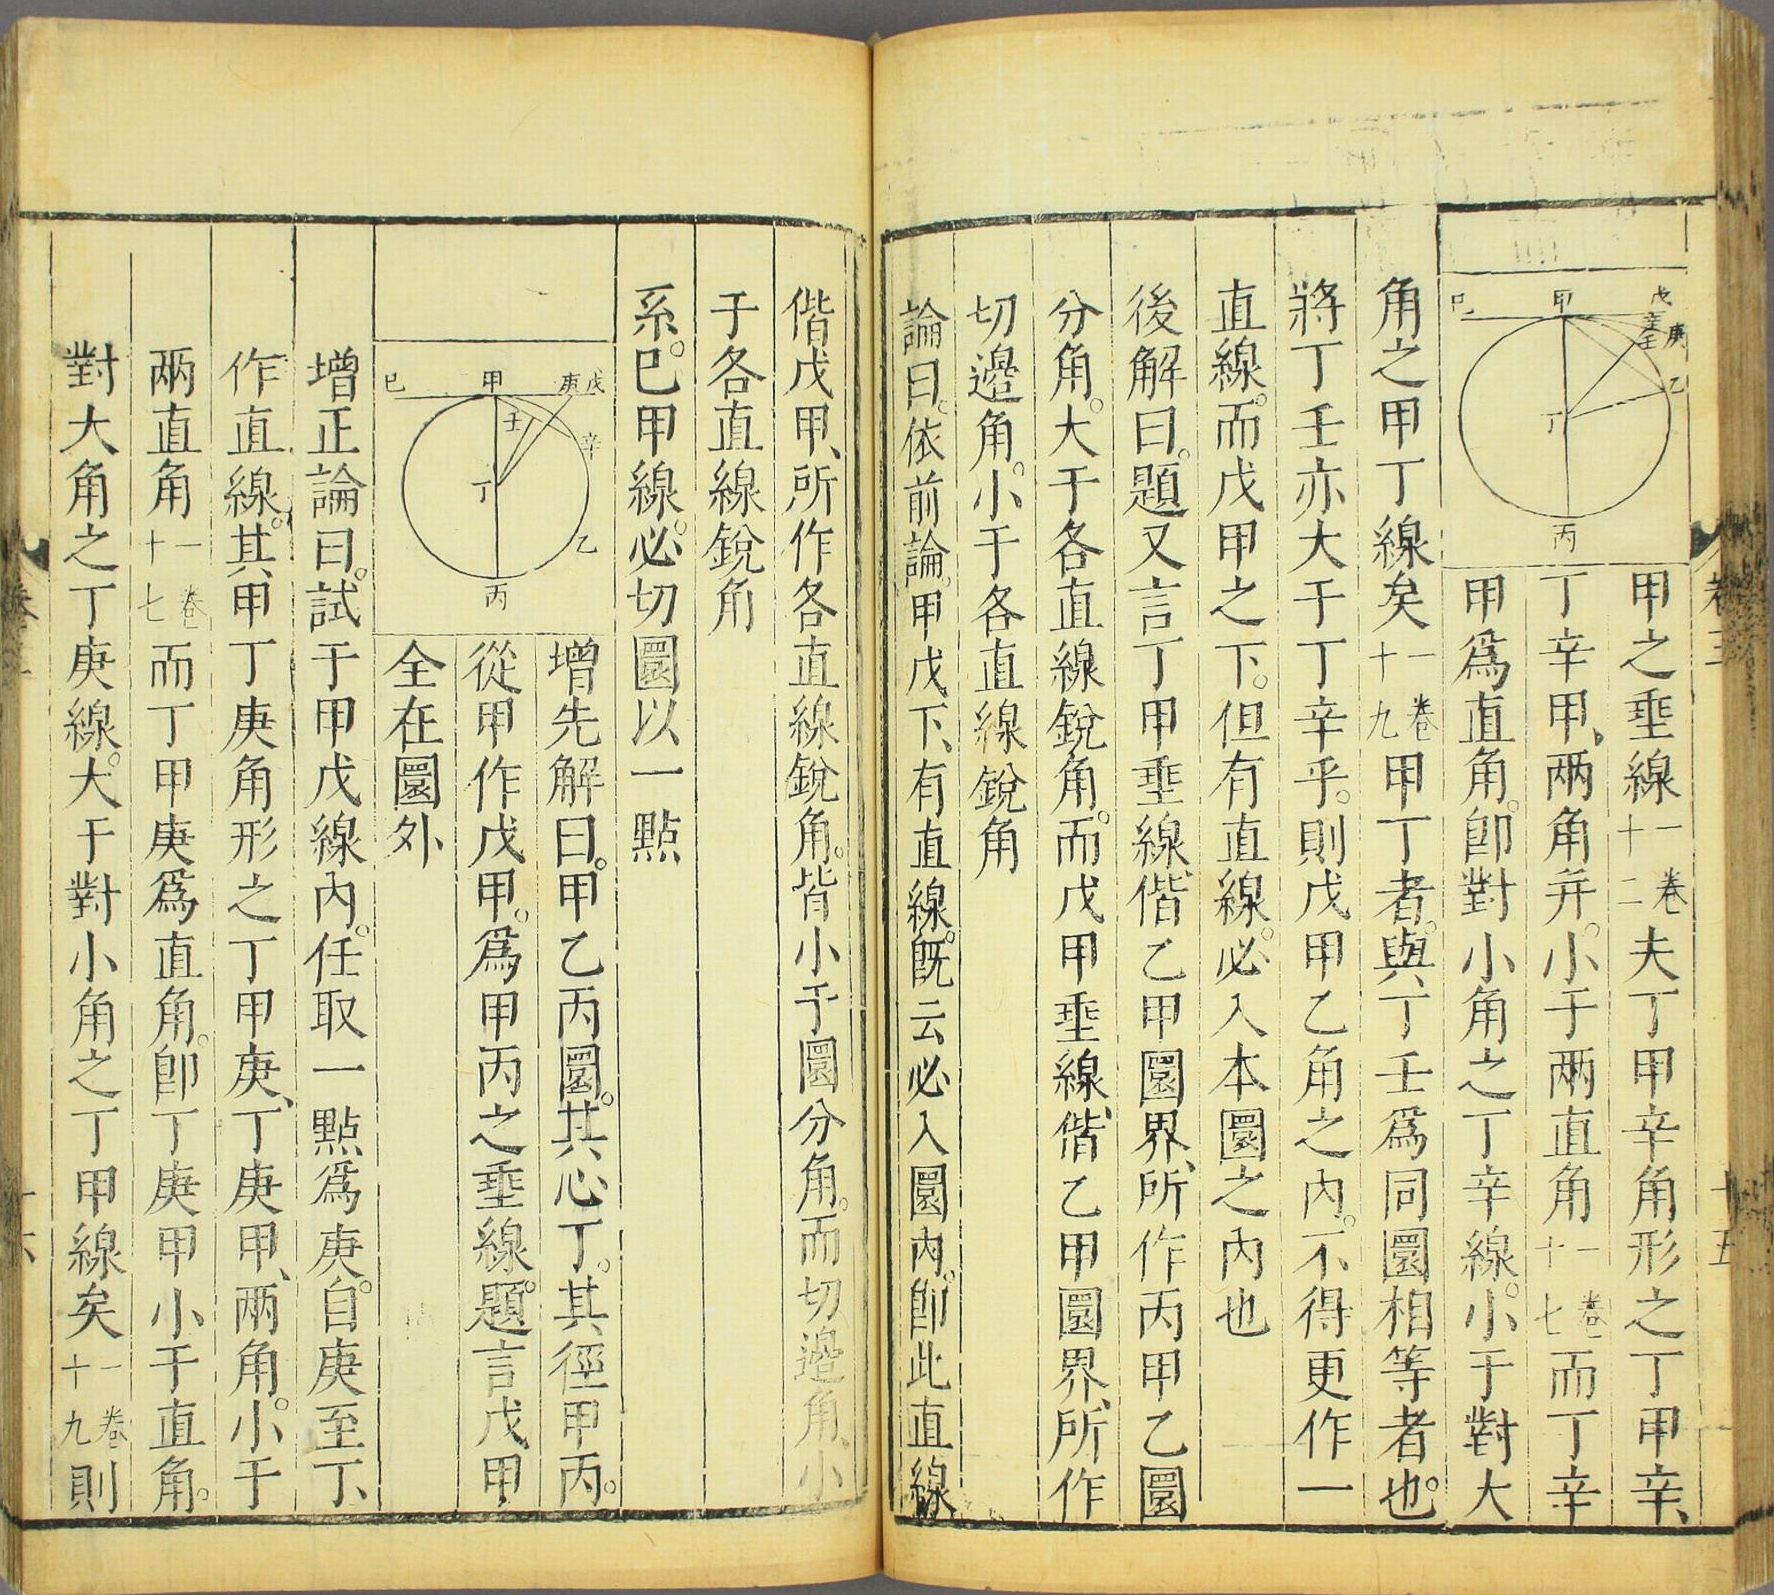 卷三
十五
戊
甲
巳
庚
辛
壬
乙
丁
丙
甲之垂線一卷十二夫丁甲辛角形之丁甲辛、
丁辛甲、兩角并。小于兩直角一卷十七而丁辛
甲爲直角。卽對小角之丁辛線。小于對大
角之甲丁線矣一卷十九甲丁者。與丁壬爲同圜相等者也。
將丁壬亦大于丁辛乎。則戊甲乙角之內。不得更作一
直線。而戊甲之下。但有直線。必入本圜之內也
後解曰。題又言丁甲垂線、偕乙甲圜界、所作丙甲乙圜
分角。大于各直線銳角。而戊甲垂線、偕乙甲圜界、所作
切邊角。小于各直線銳角
論曰。依前論。甲戊下、有直線。旣云必入圜內。卽此直線
偕戊甲、所作各直線銳角。皆小于圜分角。而切邊角、小
于各直線銳角
系。巳甲線。必切圜以一點
戊
庚
甲
巳
壬
辛
丁
乙
丙
增先解曰。甲乙丙圜。其心丁。其徑甲丙。
從甲作戊甲。爲甲丙之垂線。題言戊甲
全在圜外
增正論曰。試于甲戊線內。任取一點爲庚。自庚至丁、
作直線。其甲丁庚角形之丁甲庚、丁庚甲、兩角。小于
兩直角一卷十七而丁甲庚爲直角。卽丁庚甲小于直角。
對大角之丁庚線。大于對小角之丁甲線矣一卷十九則
十六